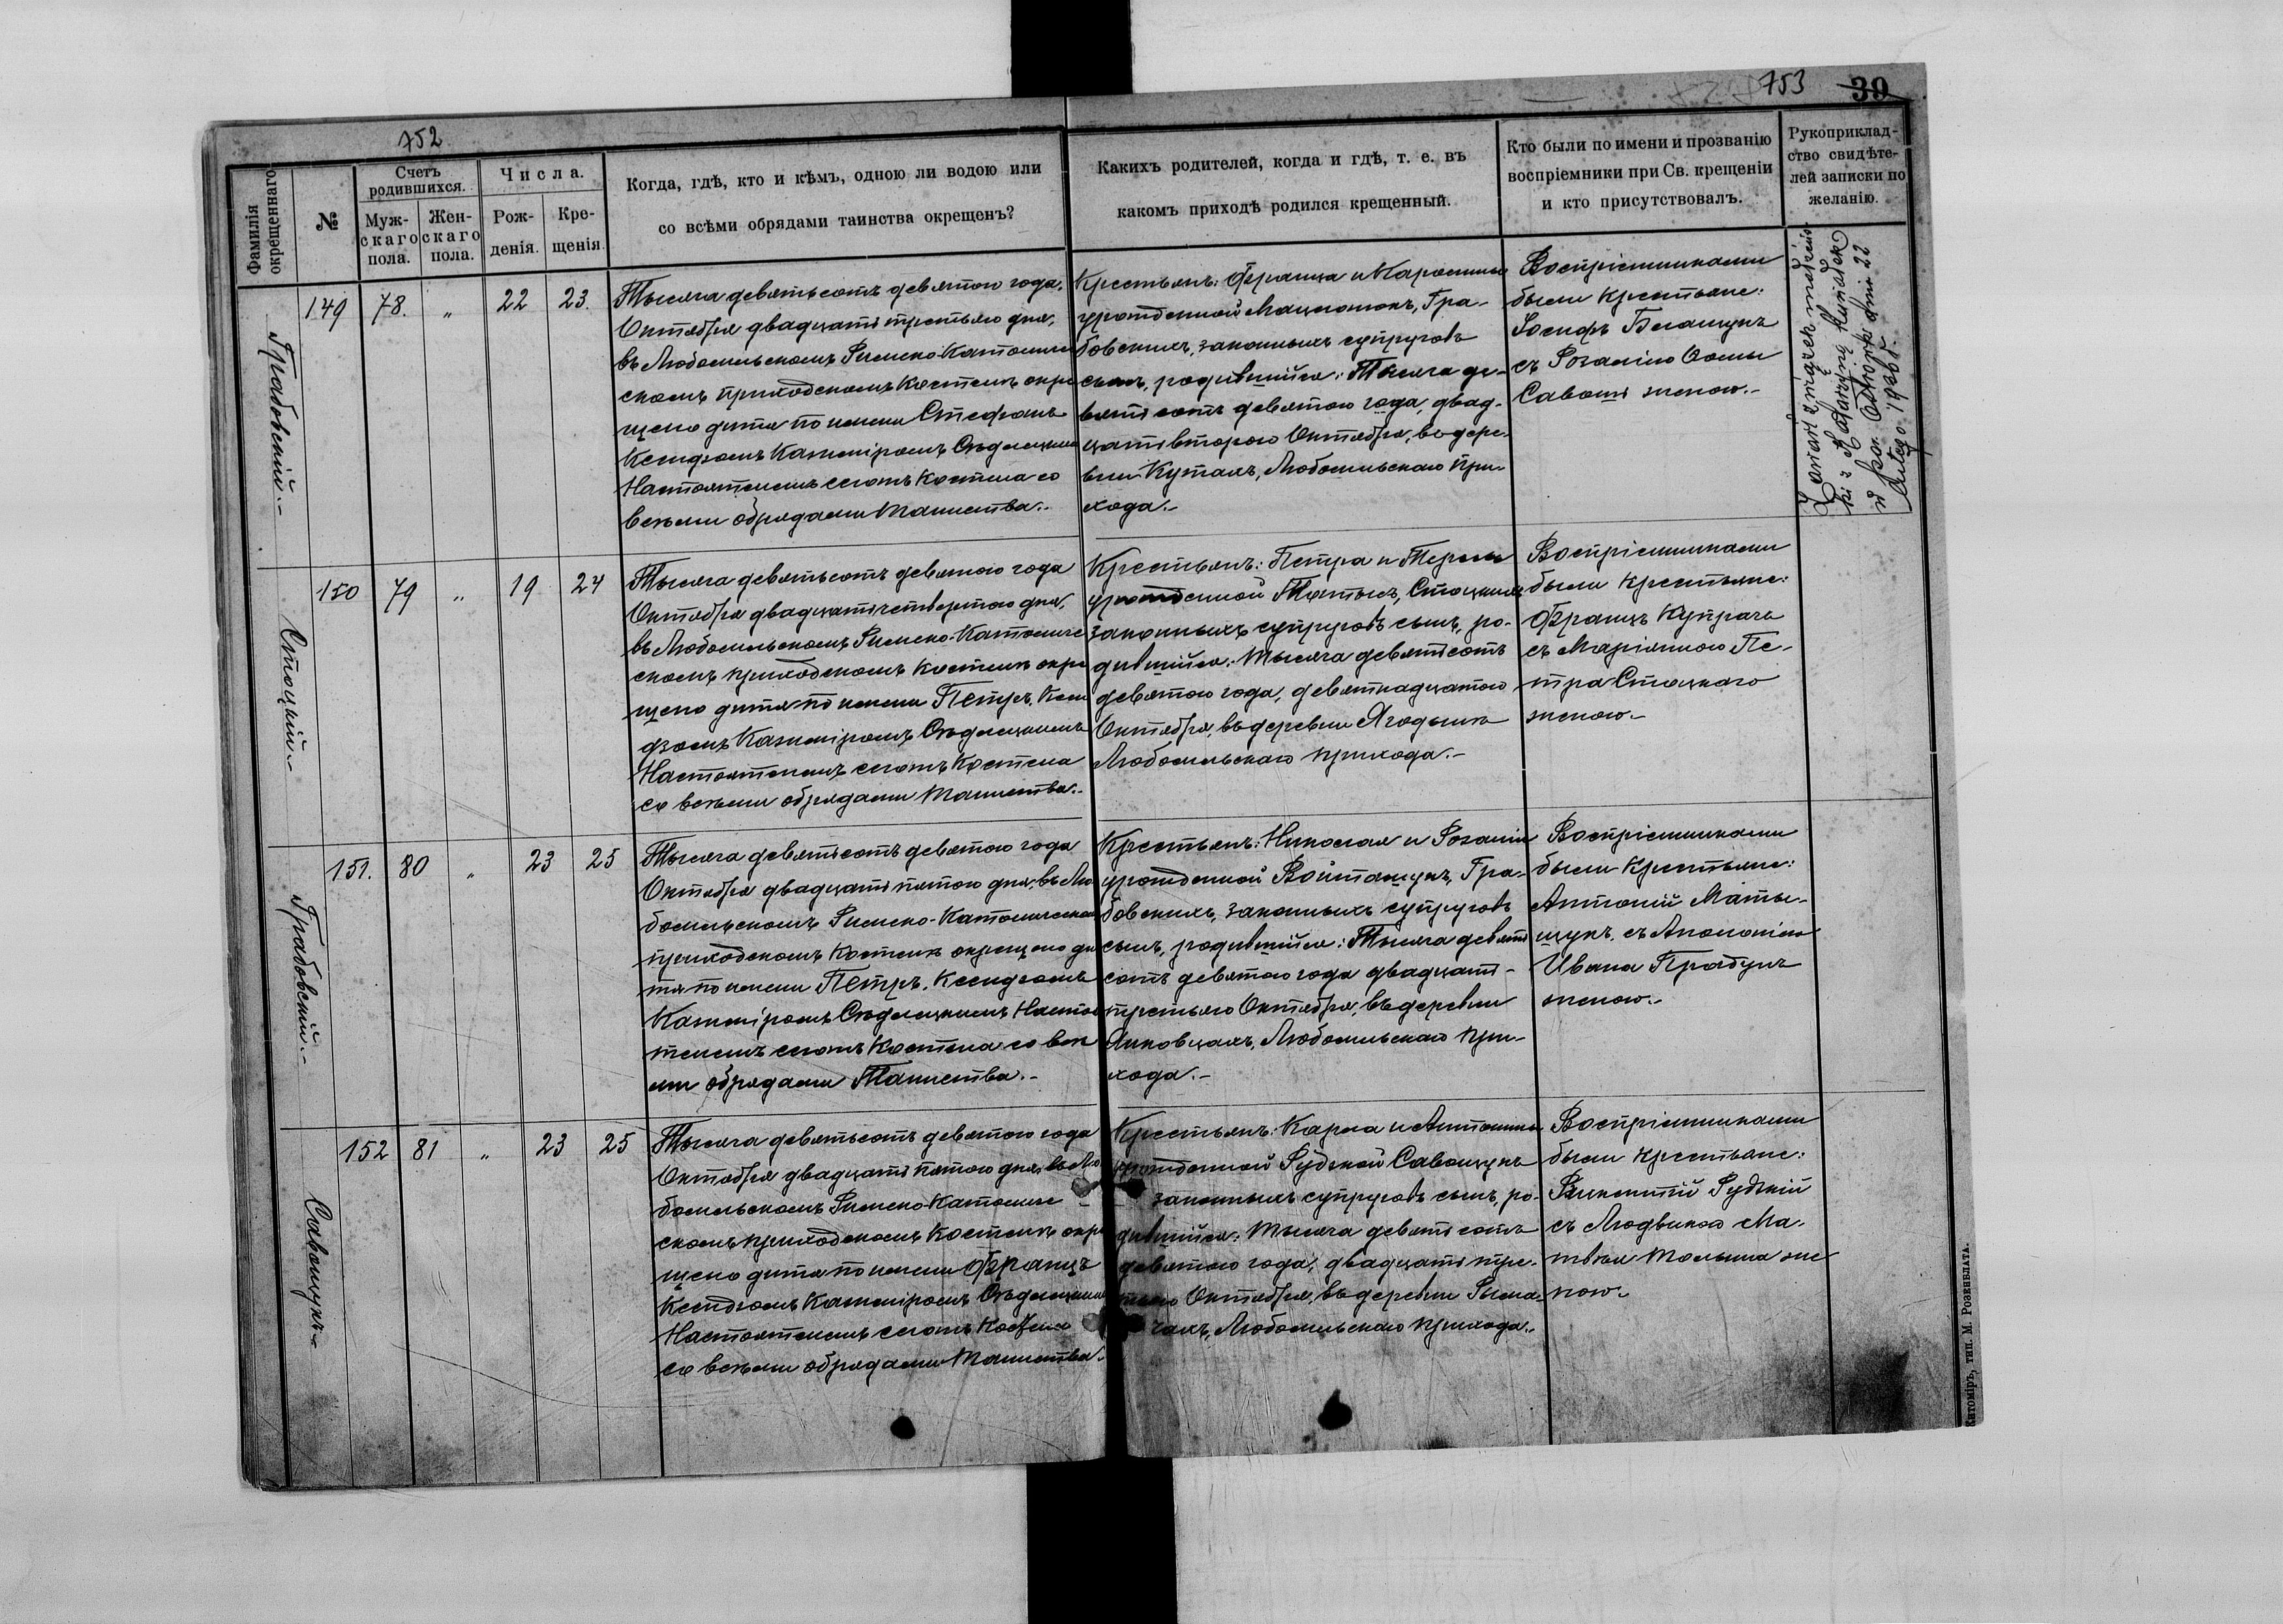 752
753
39
Фамилія окрещеннаго
№
Счетъ родившихся.
Муж-
скаго
пола.
Жен-
скаго
пола.
Числа.
Рож-
денія.
Кре-
щенія.
Когда, гдѣ, кто и кѣмъ, одною ли водою или
со всѣми обрядами таинства окрещенъ?
Какихъ родителей, когда и гдѣ, т. е. въ
какомъ приходѣ родился крещенный.
Кто были по имени и прозванію
воспріемники при Св. крещеніи
и кто присутствовалъ.
Рукоприклад-
ство свидѣте-
лей записки по
желанію.
Грабовскій.-
149 78. „ 22 23.
Тысяча девятьсотъ девятого года,
Октября двадцать третьяго дня,
въ Любомльскомъ Римско-Католиче
скомъ приходскомъ Костелѣ окре
щено дитя по имени Стефанъ
Ксендзомъ Казиміромъ Сѣдлецкимъ
Настоятелемъ сегожъ Костела со
всѣми обрядами Таинства.-
Крестьянъ: Франца и Каролины
урожденной Мацелюкъ, Гра-
бовскихъ, законныхъ супруговъ
сынъ, родившійся: Тысяча де-
вятьсотъ девятого года, двад-
цать второго Октября, въ дере-
вни Кутахъ, Любомльскаго При-
хода.-
Воспріемниками
были крестьяне:
Іосифъ
съ Розаліею Фомы
женою.-
Zawarł związek małżeń-
ski z Katarzyną
w par. Ostrówki dnia 22
lutego 193
Стоцкій.-
150 79 „ 19 24
Тысяча девятьсотъ девятого года
Октября двадцать четвертого дня,
въ Любомльскомъ Римско-Католиче
скомъ приходскомъ Костелѣ окре
щено дитя по имени Петръ, Ксен
дзомъ Казиміромъ Сѣдлецкимъ
Настоятелемъ сегожъ Костела
со всѣми обрядами Таинства.-
Крестьянъ: Петра и Терезы
урожденной Стоцкихъ
законныхъ супруговъ сынъ, ро-
дившійся: Тысяча девятьсотъ
девятого года, девятнадцатого
Октября, въ деревни Ягодынѣ
Любомльскаго прихода.-
Воспріемниками
были крестьяне:
Францъ Купрачъ
съ Маріянною Пе-
тра Стоцкаго
женою.-
Грабовскій.-
151. 80 „ 23 25
Тысяча девятьсотъ девятого года
Октября двадцать пятого дня, въ Лю
бомльскомъ Римско-Католическомъ
приходскомъ Костелѣ окрещено ди
тя по имени Петръ, Ксендзомъ
Казиміромъ Сѣдлецкимъ Настоя
телемъ сегожъ Костела со всѣ
ми обрядами Таинства.-
Крестьянъ: Николая и Розаліи
урожденной Войтащукъ, Гра-
бовскихъ, законныхъ супруговъ
сынъ, родившійся: Тысяча девять
сотъ девятого года двадцать
третьяго Октября, въ деревни
Янковцахъ, Любомльскаго При-
хода.-
Воспріемниками
были крестьяне:
Антоній Маты-
щукъ, съ Аполоніею
Ивана
женою.-
Савощукъ-
152 81 „ 23 25
Тысяча девятьсотъ девятого года
Октября двадцать пятого дня, въ Лю
бомльскомъ Римско-Католиче
скомъ приходскомъ Костелѣ окре
щено дитя по имени Францъ
Ксендзомъ Казиміромъ Сѣдлецкимъ
Настоятелемъ сегожъ Костела
со всѣми обрядами Таинства.
Крестьянъ: Карла и Антонины
урожденной Рудской Савощукъ
законныхъ супруговъ сынъ, ро-
дившійся: Тысяча девятьсотъ
девятого года, двадцать тре-
тьяго Октября, въ деревни Рыма-
чахъ, Любомльскаго прихода.-
Воспріемниками
были крестьяне:
Викентій Рудскій
съ Людвикою Ма-
твѣя же
ною.-
Житоміръ, тип. М. Розенблата.